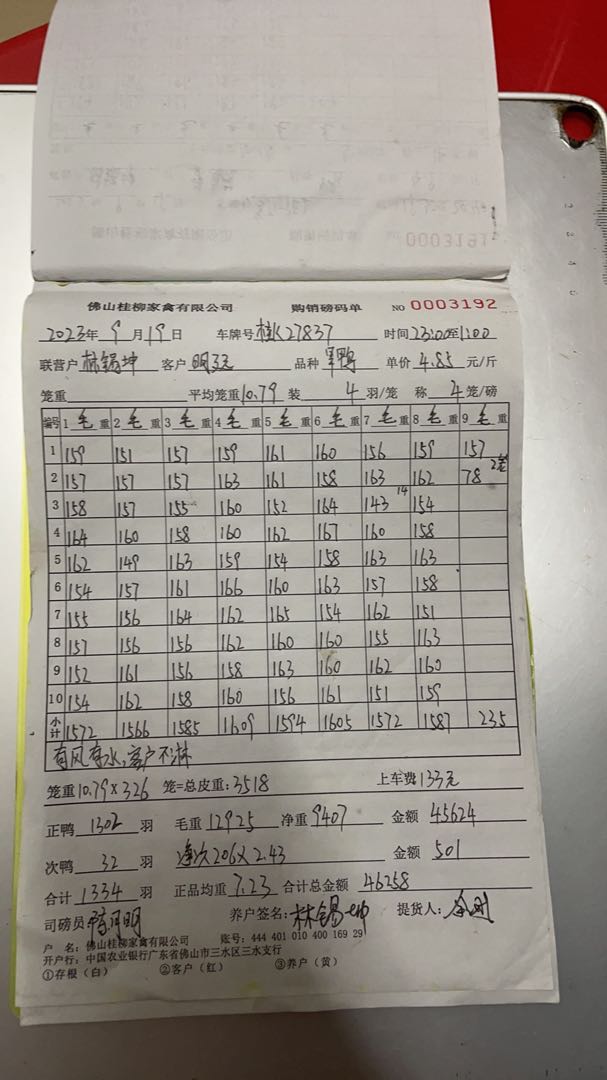 0001913
佛山桂柳家禽有限公司 购销磅码单 NO 0003192
2023年 9月 19日 车牌号 桂K27837 时间 23:00至1:00
联营户 林锡坤 客户 品种 单价 4.85 元/斤
笼重 平均笼重 10.79 装 4 羽/笼 称 4 笼/磅
编号 1 毛 重 2 毛 重 3 毛 重 4 毛 重 5 毛 重 6 毛 重 7 毛 重 8 毛 重 9 毛 重
1 159 151 157 159 161 160 156 159 157
2 157 157 157 163 161 158 163 162 78 2笼
3 158 157 155 160 152 164 143 14 154
4 164 160 158 160 162 167 160 158
5 162 149 163 159 154 158 163 163
6 154 157 161 166 160 163 157 158
7 155 156 164 162 165 154 162 151
8 157 156 156 162 160 160 155 163
9 152 161 156 158 163 160 162 160
10 154 162 158 160 156 161 151 159
小计 1572 1566 1585 1609 1594 1605 1572 1587 235
有风有水,客户不淋
笼重 10.79×326 笼=总皮重:3518 上车费 133元
正鸭 1302 羽 毛重 12925 净重 9407 金额 45624
次鸭 32 羽 净次206×2.43 金额 501
合计 1334 羽 正品均重 7.23 合计总金额 46258
司磅员 陈月明 养户签名: 林锡坤 提货人:
户 名: 佛山桂柳家禽有限公司 账号: 444 401 010 400 169 29
开户行: 中国农业银行广东省佛山市三水区三水支行
①存根(白) ②客户(红) ③养户(黄)